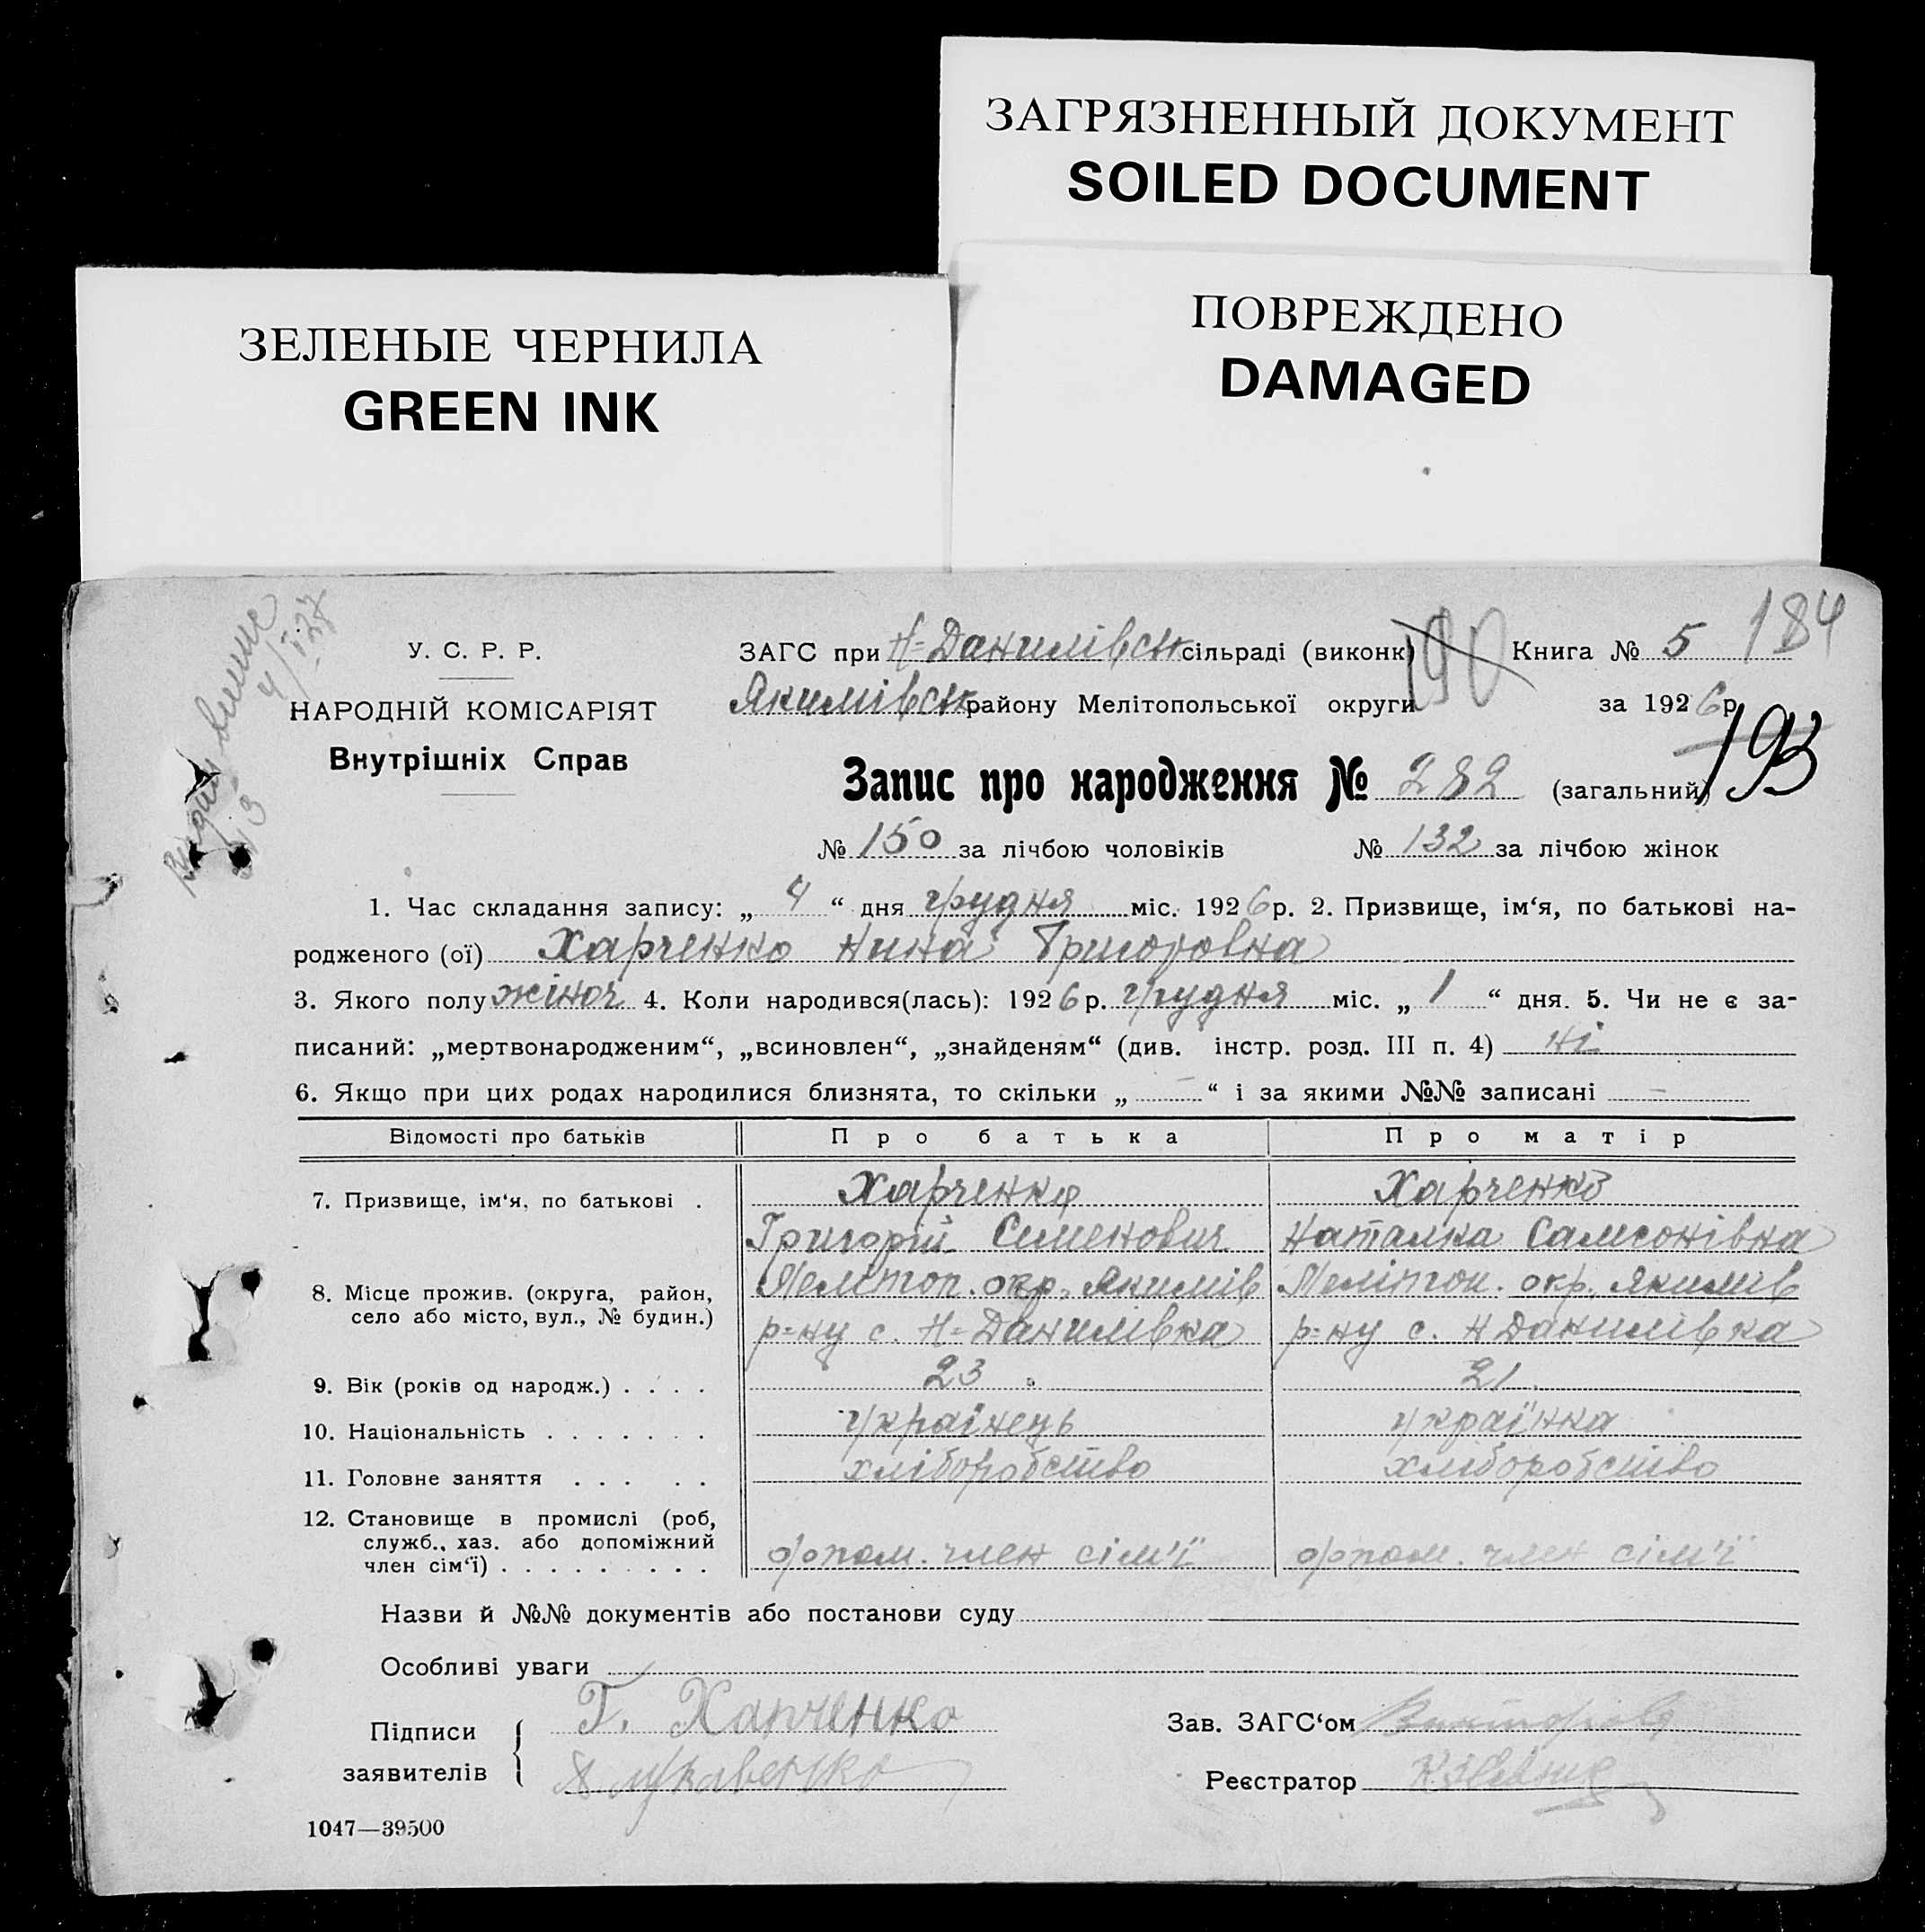 ЗАГРЯЗНЕННЫЙ ДОКУМЕНТ
SOILED DOCUMENT
ЗЕЛЕНЫЕ ЧЕРНИЛА
GREEN INK
ПОВРЕЖДЕНО
DAMAGED
184
190
193
У. С. Р. Р.
НАРОДНІЙ КОМІСАРІЯТ
Внутрішніх Справ
ЗАГС при Н=Данилівськ сільраді (виконк) Книга № 5
Якимівськ району Мелітопольської округи за 1926 р.
Запис про народження № 282 (загальний)
№ 150 за лічбою чоловіків № 132 за лічбою жінок
1. Час складання запису: „ 4 “ дня грудня міс. 1926 р. 2. Призвище, ім‘я, по батькові на-
родженого (ої) Харченко Нина Григоровна
3. Якого полу жіноч 4. Коли народився(лась): 1926 р. грудня міс. „ 1 “ дня. 5. Чи не є за-
писаний: „мертвонародженим“, „всиновлен“, „знайденям“ (див. інстр. розд. III п. 4) ні
6. Якщо при цих родах народилися близнята, то скільки „ — “ і за якими №№ записані —
Відомості про батьків Про батька Про матір
7. Призвище, ім‘я, по батькові . Харченко Харченко
Григорій Семенович Наталка Самсонівна
8. Місце прожив. (округа, район, село або місто, вул., № будин.) Мелітоп. окр. Якимів Мелітоп. окр. Якимів
р=ну с. Н=Данилівка р=ну с. Н Данилівка
9. Вік (років од народж.) . . . . 23 21
10. Національність . . . . . . . українець українка
11. Головне заняття . . . . . хліборобство хліборобство
12. Становище в промислі (роб, служб., хаз. або допоміжний член сім‘ї) . . . . . . . . . допом. член сім'ї допом. член сім'ї
Назви й №№ документів або постанови суду
Особливі уваги
Підписи заявителів
Г. Харченко
Зав. ЗАГС‘ом
Реєстратор
1047—39500